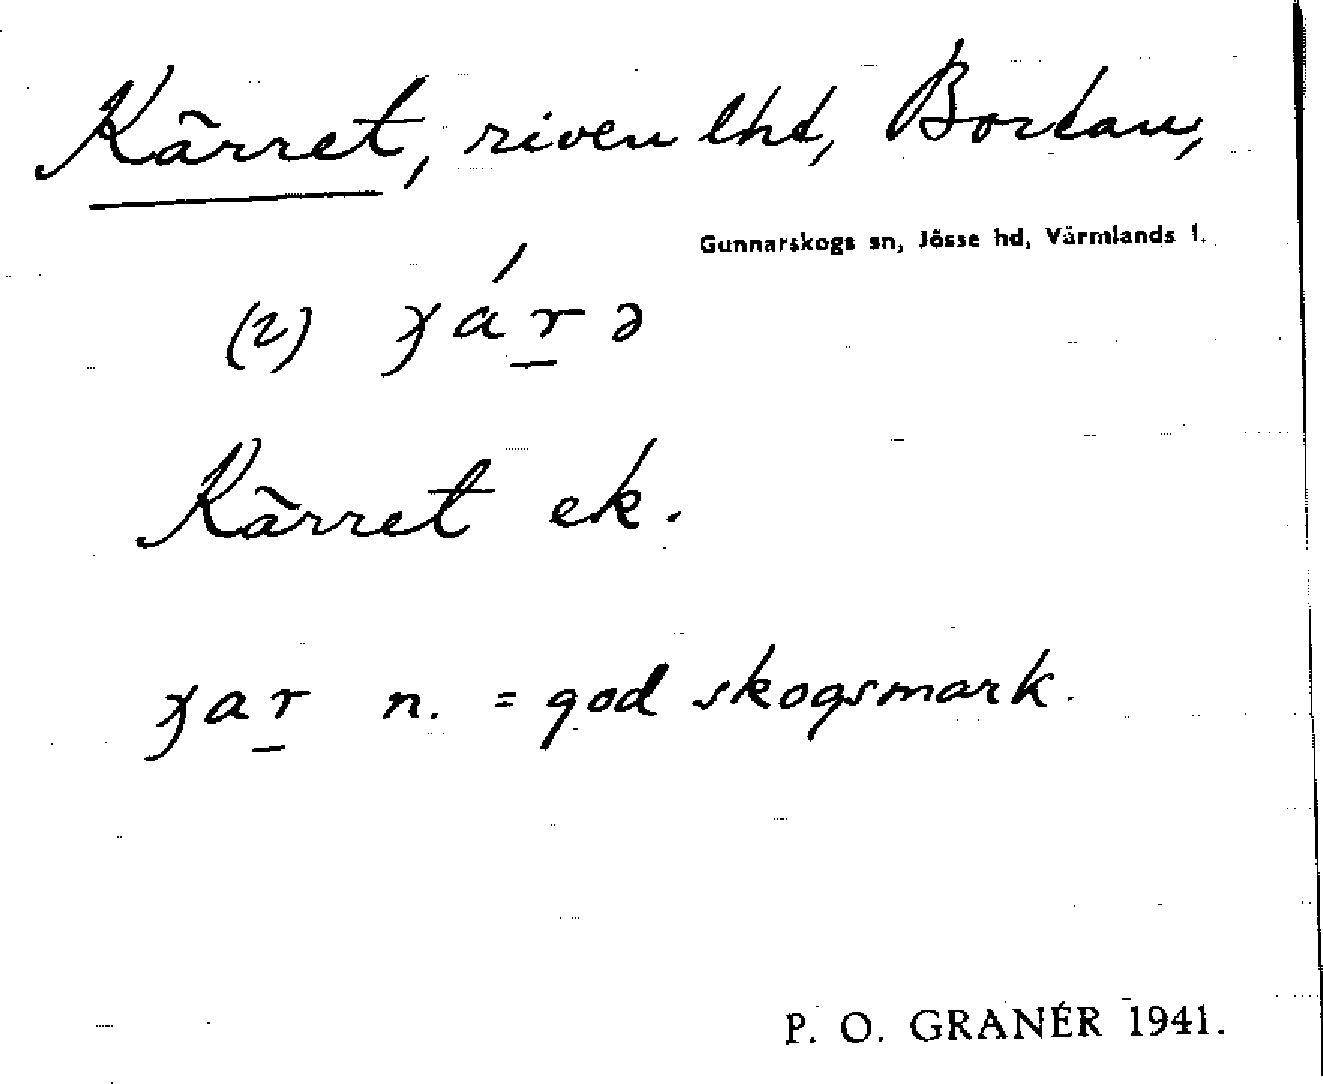 Kärret, riven lht, Bortan,
Gunnarskogs sn, Jösse hd, Värmlands l.
(2)
Kärret ek.
n. = god skogsmark.
P. O. GRANÉR 1941.